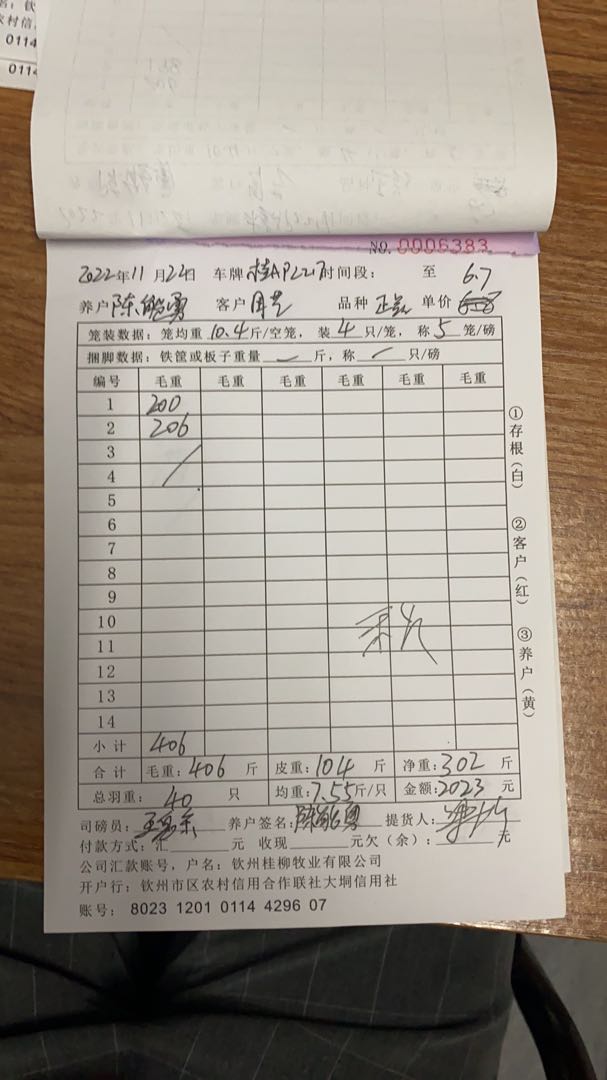 NO. 0006383
2022年11月22日 车牌 桂AP2217 时间段: 至 6.7
养户 陈能勇 客户 品种 正 单价
笼装数据: 笼均重 10.4 斤/空笼, 装 4 只/笼, 称 5 笼/磅
捆脚数据: 铁筐或板子重量 — 斤, 称 只/磅
编号 毛重 毛重 毛重 毛重 毛重 毛重
1 200
2 206
3
4
5
6
7
8
9
10
11
12
13
14
小计 406
合计 毛重: 406 斤 皮重: 104 斤 净重: 302 斤
总羽重: 40 只 均重: 7.55 斤/只 金额: 2023 元
司磅员: 养户签名: 陈能勇 提货人:
付款方式: 汇 收现 元欠(余): 元
公司汇款账号, 户名: 钦州桂柳牧业有限公司
开户行: 钦州市区农村信用合作联社大垌信用社
账号: 8023 1201 0114 4296 07
①存根(白)
②客户(红)
③养户(黄)
0114
0114